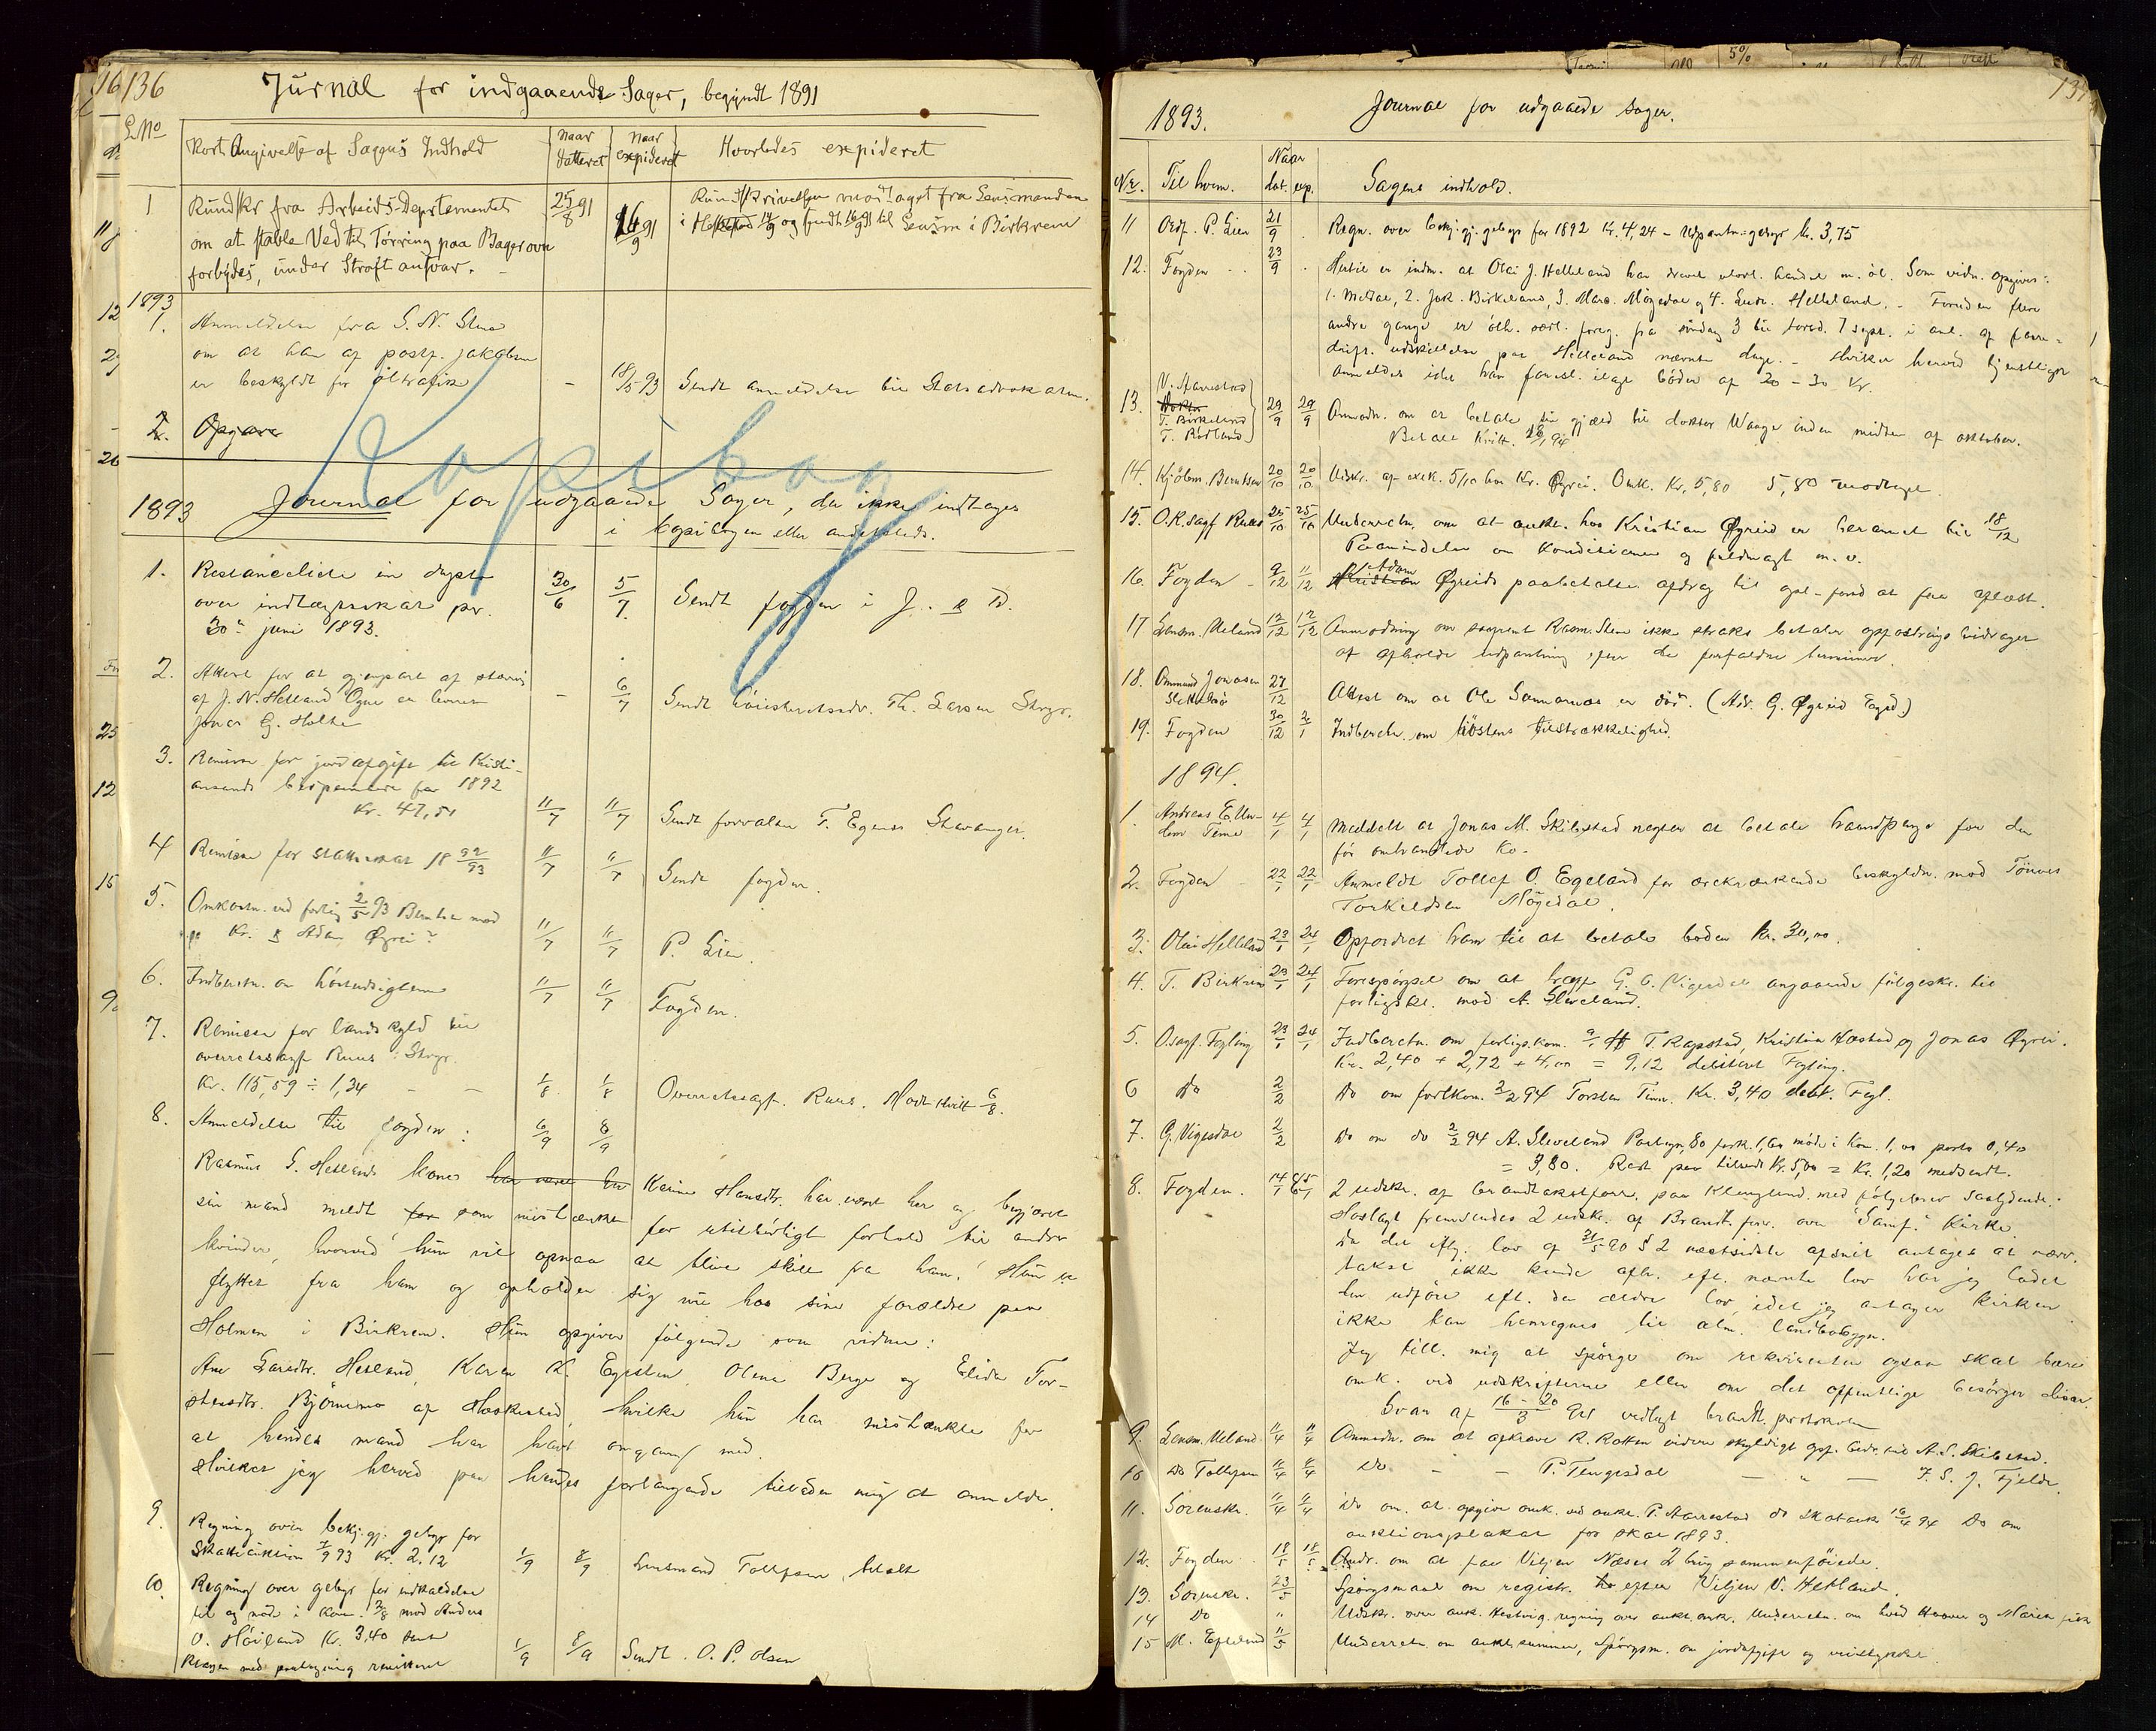 136
Jurnal for indgaaende Sager, begyndt 1891
L.No
Kort Angivelse af Sagens Indhold
naar datteret
naar expideret
Hvorledes expideret
1
Rundskr fra Arbeids-Departementet
om at stable Ved til Tørring paa Bagerovn
forbydes, under Straffansvar.
25/8 91
16/9 91
Rundskrivelsen modtaget fra Lensmanden
i Heskestad 14/9 og sendt 16/9 91 til Lensm i Birkrem
1893
1.
Anmeldelse fra S. N. Slene
om at han af postf. Jakobsen
er beskyldt for øltrafik
-
18/5 93
Sendt anmeldelse til Statsadvokaten.
2. Opgave
Kopibog
1893
Journal for udgaaede Sager, der ikke indtages
i kopibogen eller andetsteds.
1.
Restanceliste in duplo
over indtægtsskat pr.
30te juni 1893.
30/6
5/7
Sendt fogden i J. & D.
2.
Attest for at gjenpart af stævn
af J. N. Hetland Ogne er leveret
Jonas G. Holte
-
6/7
Sendt Høiesteretsadv. Th. Larsen Stvgr.
3.
Remisse for jordafgift til Kristi-
ansands bispeenke for 1892
Kr. 47,51
11/7
11/7
Sendt forvalter T. Egenes Stavanger.
4
Remisse for statsskat 18 92/93
11/7
11/7
Sendt fogden.
5.
Omkostn. ved forlig 2/5 93 Berntsen mod
Kr. & Adam Øgrei?
11/7
11/7
P. Lien.
6.
Indberetn. om høstudsigterne
11/7
11/7
Fogden.
7.
Remisse for landskyld til
overretssagf Ruus i Stvgr.
Kr. 115,59 ÷ 1,34
1/8
1/8
Overretssagf. Ruus. Modt kvitt 6/8.
8.
Anmeldelse til fogden:
6/9
8/9
Rasmus G. Hetlands kone Karine Hansdtr. har været her og begjæret
sin mand meldt som mistænkt for utilbørligt forhold til andre
kvinder, hvorved hun vil opnaa at blive skilt fra ham. Hun er
flyttet fra ham og opholder sig nu hos sine forældre paa
Holmen i Birkrem. Hun opgiver følgende som vidner:
Ane Larsdtr. Hetland, Karen K. Egesten, Olene Berge og Elida Tor-
stensdtr. Bjørnemo af Heskestad, hvilke hun har mistænkte for
at hendes mand har havt omgang med.
Hvilket jeg herved paa hendes forlangende tillader mig at anmelde.
9.
Regning over bekj. gj. gebyr for
skatteauktion 1/9 93 Kr. 2,12
1/9
8/9
Lensmand Tollefsen betalt
10.
Regning over gebyr for indkaldelse
til og møde i kom. 3/8 mod Anders
O. Høiland Kr. 3,40 samt
klagen med paategning remitteret
1/9
8/9
Sendt O. P. Olsen
137
1893.
Journal for udgaaede sager.
Nr.
Til hvem.
Naar
dat. exp.
Sagens indhold.
11
Ordf. P. Lien
21/9
Regn. over bekj.gj.gebyr for 1892 Kr. 4,24 - Udpantn=gebyr kr. 3,75
12.
Fogden
23/9
Hertil er indm. at Olai J. Helleland har drevet ulovl. handel m. öl. Som vidn. opgives:
1. Meldal, 2. Jak. Birkeland, 3. Mars. Mögedal og 4. Ludv. Helleland. - Foruden flere
andre gange er ölh. særl. foreg. fra söndag 3 til torsd. 7 sept. i anl. af
udskiftelse paa Helleland nævnte dage. - Hvilket herved tjenstligst
anmeldes idet han foresl. ilagt böder af 20 - 30 Kr.
13.
T. Birkeland
T. Rödland
29/9
29/9
Anmodn. om at betale sin gjæld til doktor Waage inden midten af oktober.
Betalt Kvitt.
14.
Kjöbm. Berntsen
20/10
20/10
Udskr. af exek. 5/10 hos Kr. Øgrei. Omk. Kr. 5,80 5,80 modtaget.
15.
O.R.sagf Ruus
25/10
25/10
Underretn. om at aukt. hos Kristian Øgreid er berammet til 18/12
Paamindelse om Konditioner og fuldmagt m. v.
16.
Fogden
9/12
11/12
Adam Øgreids paabetalte afdrag til opl-fond at faa aflæst.
17
Lensm. Ueland
12/12
12/12
Anmodning om Rasm. Slene ikke straks betaler opfostringsbidraget
at afholde udpantning for de forfaldne terminer.
18.
Ommund Jonasen
Slettebø
27/12
Attest om at Ole Sannarnes er död. (Adr. G. Øgreid Egsd.)
19.
Fogden
30/12
2/1
Indberetn. om höstens tilstrækkelighed.
1894.
1.
4/1
4/1
Meddelt at Jonas M. Skibstad negter at betale haandpenge for den
før omhandlede Ko.
2.
Fogden
22/1
22/1
Anmeldt Tollef O. Egeland for ærekrænkende beskyldn. mod Tönnes
Torkildsen Mögedal.
3.
Olai Helleland
23/1
24/1
Opfordret ham til at betale boden Kr. 30,00.
4.
T. Birkrem
23/1
24/1
Forespørgsel om at træffe G. O. Vigesdal angaaende følgeskr. til
forligskl. mod A. Sleveland.
5.
O.sagf. Fogling
23/1
24/1
Indberetn. om forligs.kom. T. Rapstad, Kristian Hæstad og Jonas Øgrei.
Kr. 2,40 + 2,72 + 4,00 = 9,12 debitert Fogling.
6
Do
2/2
Do om forlkom. 2/2 94 Torsten Time. Kr. 3,40 debt. Fogl.
7.
G. Vigesdal
2/2
Do om do 2/2 94 A. Sleveland Paategn. 80 fork. 1,60 møde i kom. 1,00 porto 0,40
= 3,80. Rest paa tilsendt Kr. 5,00 = Kr. 1,20 medsendt.
8.
Fogden.
2 udskr. af brandtakstforr. paa Klungland med fölgebrev saalydende:
Hoslagt fremsendes 2 udskr. af Brandt.forr. over "Samf." Kirke.
Da det iflg. lov af 31/5 90 § 2 næstsidste afsnit antages at nærv.
takst ikke kunde afh. eft. nævnte lov har jeg ladet
den udføre eft. den ældre lov, idet jeg antager kirken
ikke kan henregnes til alm. landbobygn.
Jeg till. mig at spörge om rekvirenten ogsaa skal bære
omk. ved udskrifterne eller om det offentlige besørger disse.
Svar af 16-20/3 94 vedlagt brandt.protokol
9.
Lensm. Ueland
11/4
11/4
Anmodn. om at afkræve R. Rotten videre skyldigt opf. bidr. til A. S. Skibstad.
10
Do Tollefsen
11/4
11/4
Do - - P. Tengesdal - " - F. S. J. Fjelde.
11.
Sorenskr.
11/4
11/4
Do om at opgive omk. ved aukt. P. Aarrestad do skatauk 10/4 94 Do om
auktionsplakat for skat 1893.
12.
Fogden
18/5
18/5
Andr. om at faa Viljen Næses 2 brug sammenföiede.
13.
Sorenskr.
23/5
Spørgsmaal om registr. efter Viljen V. Hetland.
14
Do
"
Udskr. over auk. Hestvig, regning over aukt.omk. Underretn. om
15
M. Efteland
11/5
Underretn. om auktsummer, Spørgsm. om jordafgift og